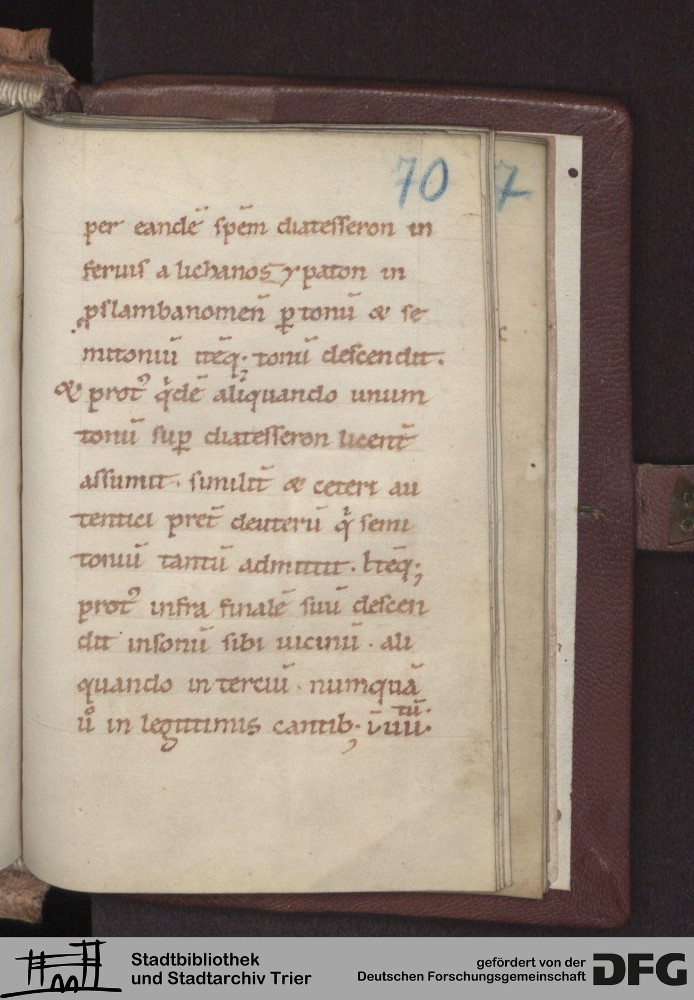 70
7
per eandē spēm diatesseron in
feruis a lichanos ypaton in
pslambanomeñ ꝑ tonū & se
mitoniū itēq; tonū descendit.
& prot᾽ q̇dē aliquando unum
tonū suꝑ diatesseron licent̄
assumit. similit̄ & ceteri au
tentici pret̄ deuterū q̇ semi
toniū tantū admittit.
prot᾽ infra finalē suū descen
dit insonū sibi uicinū. ali
quando in terciū. numquā
ů in legitimis cantib; in iiii.
tū.
Stadtbibliothek
und Stadtarchiv Trier
gefördert von der
Deutschen Forschungsgemeinschaft
DFG